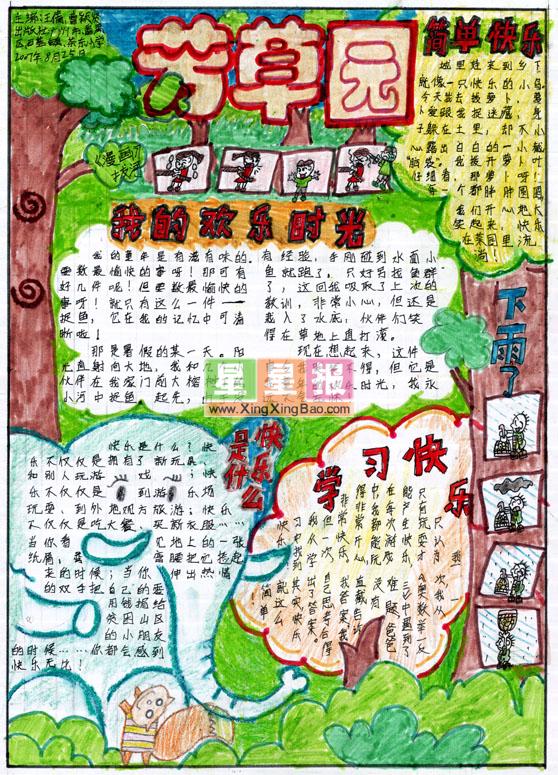 主编：汪倩、曹颖贤
2007年8月25日
芳草园
简单快乐
城里娃来到乡下
就像一只快乐的小鸟
今天我去拔萝卜，萝
卜爱跟我捉迷藏，身
子躲在土里，却不小
心露出白白的“小
脑袋”。我拨开萝卜叶
仔细看，那萝卜呀！
每一个都胖圆圆
我笑开心地大
们起来，快乐
在菜园里流
淌！
《漫画》
找洋
我的欢乐时光
我的童年是有滋有味的。
要数最愉快的事呀！那可有
好几件呢！但要数最愉快的
事呀！就只有这么一件——
捉鱼，它在我的记忆中可清
晰啦！
那是暑假的某一天。阳
光直射向大地，我和几
伙伴在我家门前大榕
小河中捉鱼。起先，
有经验，手刚碰到水面小
鱼就跑了，只好另找鱼群
了，这回我吸取了上次的
教训，非常小心，但还是
栽入了水底，伙伴们笑
得在草地上直打滚。
现在想起来，这件
得，但它是
乐时光，我永
星星报
www.XingXingBao.com
下雨了
快乐是什么
快乐是什么？快
乐不仅仅是拥有了新玩具、
和别人玩游戏；快
乐不仅仅是到游乐场
玩耍，到外地观方旅游；快乐
不仅仅是吃大餐，买新衣服……
当你看见地上的一张
纸屑，弯腰把它捡起
来的时候；当你伸出热情
的双手把自己的零
用钱捐给
贫困山区
的小朋友
的时候……你都会感到
快乐无比！
学习快乐
我只认为
只有玩耍才
能产生快乐
在每次游玩
中我都能玩
得非常开心，
非常快乐。
但一次
我从学
习中找到
快乐。
次我从
《奥数举一反
三》中遇到了
难题，爸爸
没有直
截告诉
我答案我
自己思考后得
出了答案。
其实快乐
就这么
简单